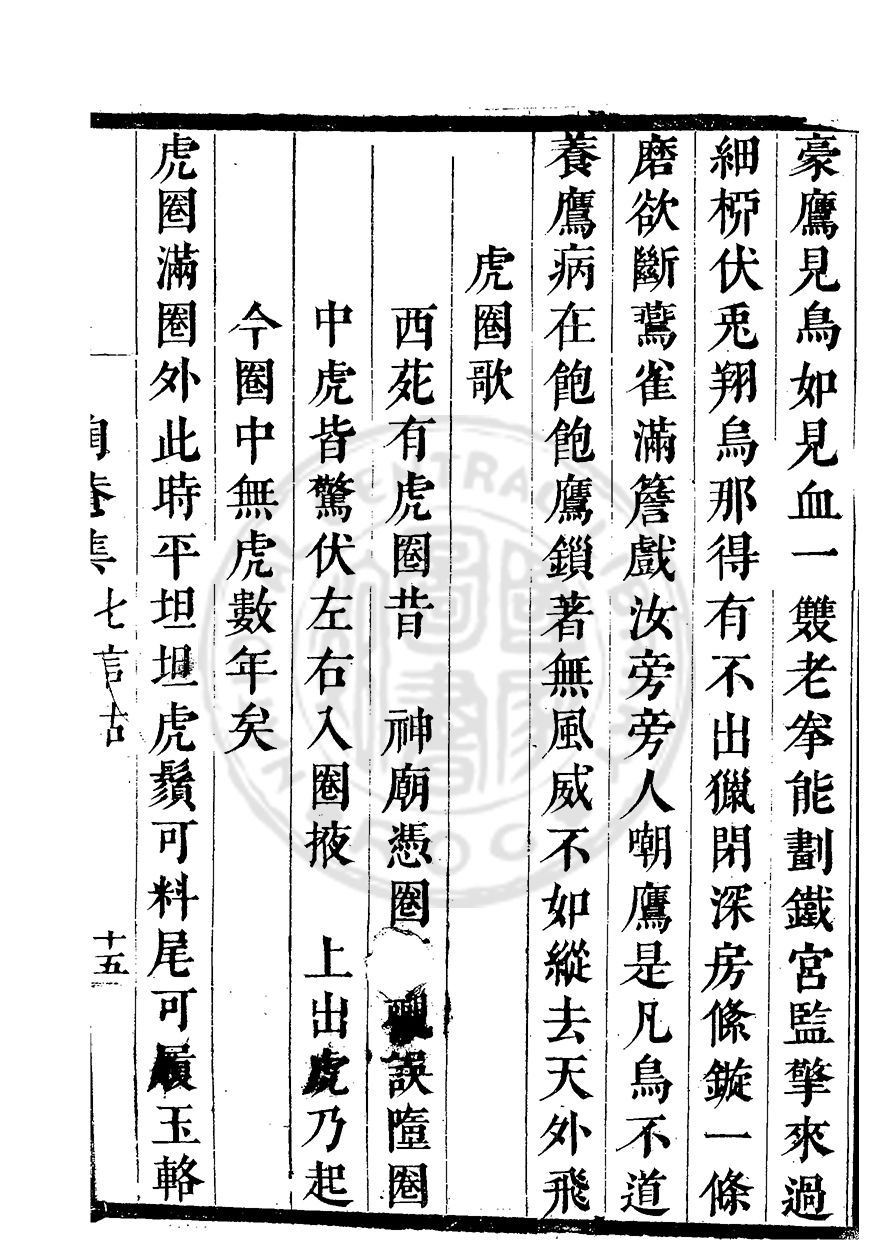 豪鷹見鳥如見血一雙老拳能劃鐵宮監擎來過
細桞伏兎翔烏那得有不出獵閉深房絛鏇一條
磨欲斷鷰雀滿簷戲汝旁旁人嘲鷹是凡鳥不道
養鷹病在飽飽鷹鎖著無風威不如縱去天外飛
虎圈歌
西苑有虎圈昔　神廟憑圈　誤墮圈
中虎皆驚伏左右入圈掖　上出虎乃起
今圈中無虎數年矣
虎圈滿圈外此時平坦坦虎鬚可料尾可履玉輅
集七言古
十五